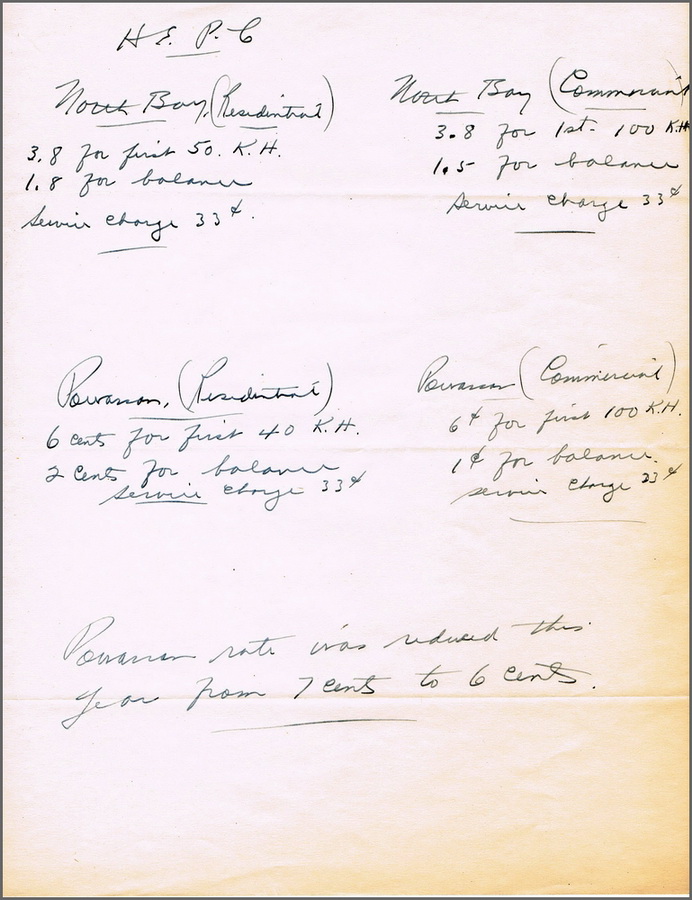 H. E. P. C
North Bay, (Residential)
3.8 for first 50. K.H.
1.8 for balance
Service charge 33¢.
North Bay (Commercial)
3.8 for 1st- 100 K.H.
1.5 for balance
Service charge 33¢
Powassan, (Residential)
6 cents for first 40 K.H.
2 cents for balance
Service charge 33¢
Powassan (Commercial)
6¢ for first 100 K.H.
1¢ for balance.
service charge 33¢
Powassan rate was reduced this
year from 7 cents to 6 cents.